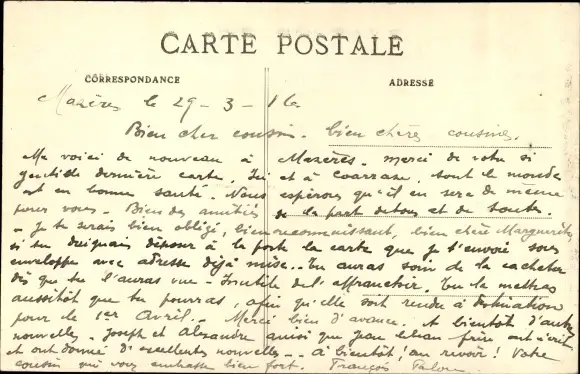 CARTE POSTALE
CORRESPONDANCE
ADRESSE
Mazères le 29-3-16
Bien cher cousin. bien chères cousines.
Me voici de nouveau à Mazères. merci de votre si
gentille dernière carte. Ici et à Coarraze, tout le monde
est en bonne santé. Nous espérons qu'il en sera de même
pour vous. Bien des amitiés de la part de tous et de toutes.
- Je te serais bien obligé, bien reconnaissant, bien chère Marguerite
si tu daignais déposer à la poste la carte que je t'envoie sous
enveloppe avec adresse déjà mise. Tu auras soin de la cacheter
dès que tu l'auras vue - Inutile de l'affranchir. Tu la mettras
aussitôt que tu pourras, afin qu'elle soit rendue à destination
pour le 1er Avril. - Merci bien d'avance. A bientôt d'autres
nouvelles. Joseph et Alexandre ainsi que Jean frère ont écrit
et ont donné d'excellentes nouvelles - à bientôt, au revoir! Votre
cousin qui vous embrasse bien fort. François